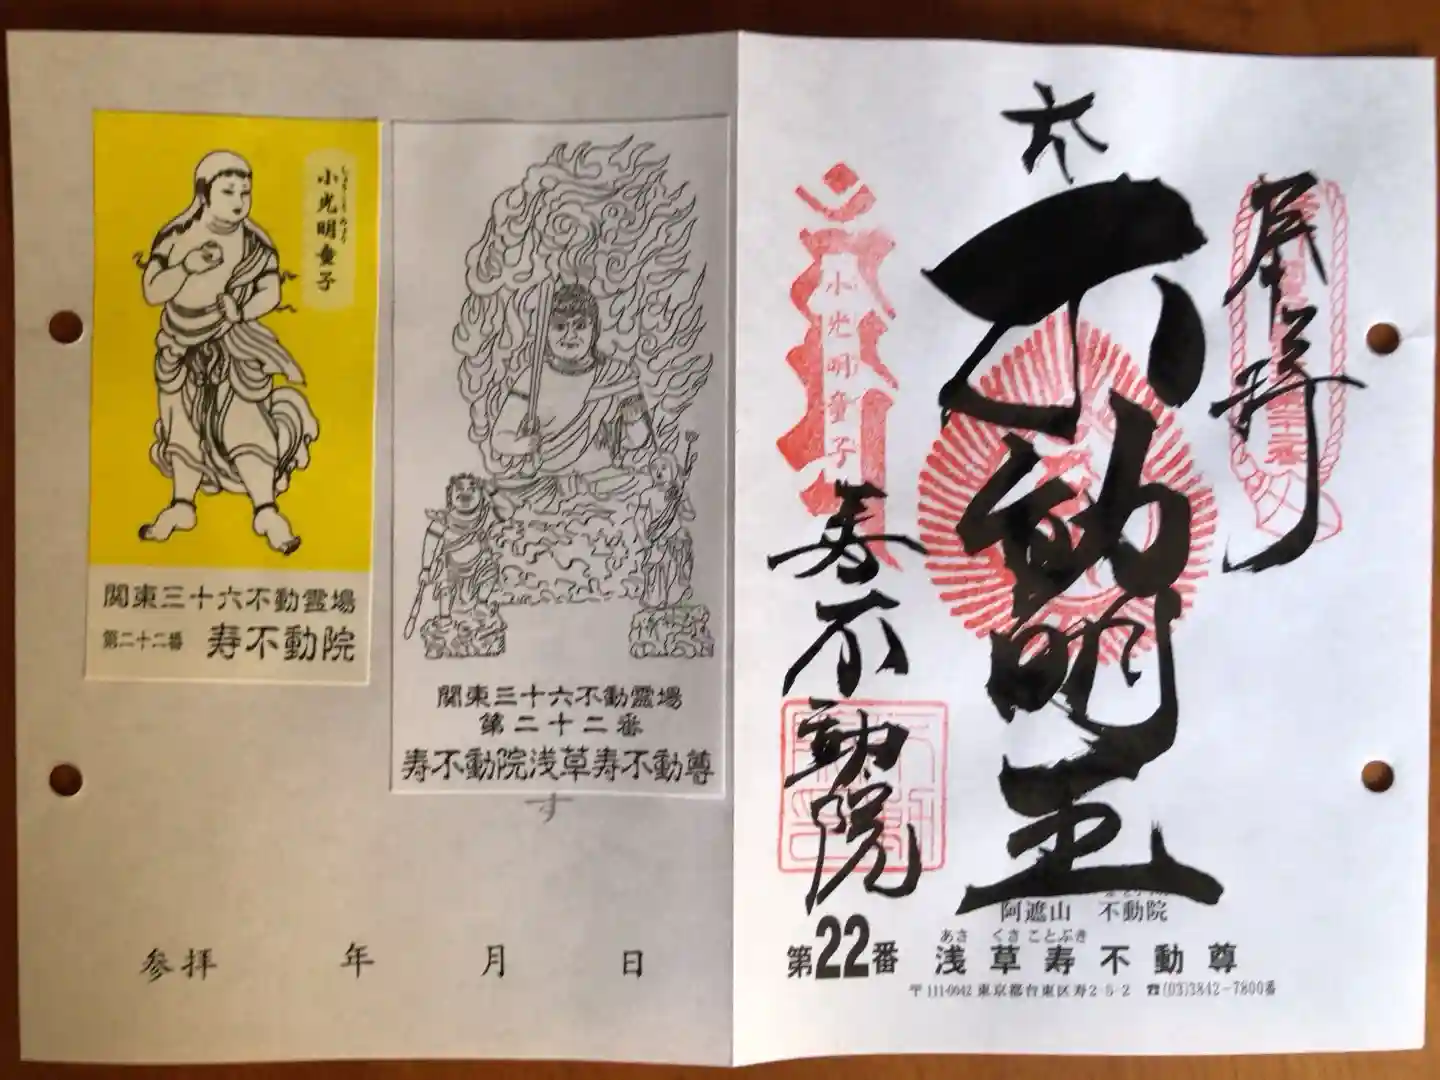 小光明童子
関東三十六不動霊場
第二十二番 寿不動院
関東三十六不動霊場
第二十二番
寿不動院浅草寿不動尊
す
参拝 年 月 日
奉拝
不動明王
小光明童子
寿不動院
阿遮山 不動院
あさ くさ ことぶき
第22番 浅草寿不動尊
〒111-0042 東京都台東区寿2-5-2 ☎(03)3842-7800番